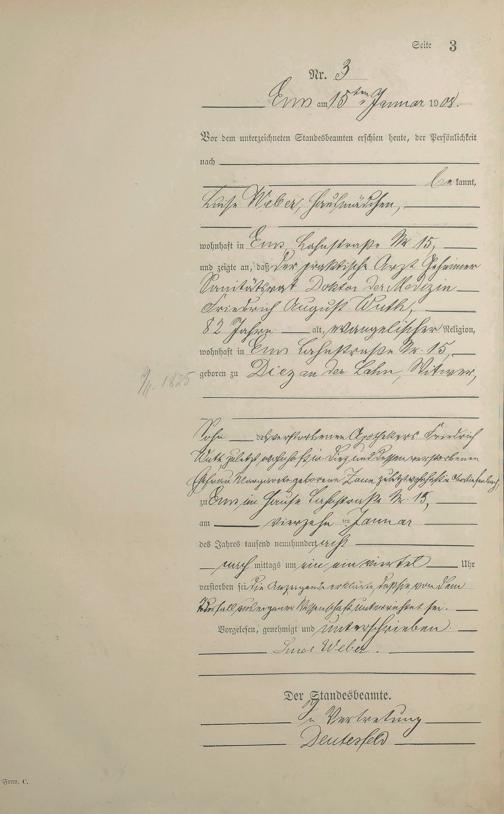 Seite 3
Nr. 3
Ems am 15ten Januar 1908.
Vor dem unterzeichneten Standesbeamten erschien heute, der Persönlichkeit
nach
bekannt,
Luise Weber, Hausmädchen,
wohnhaft in Ems, Lahnstraße Nr 15,
und zeigte an, daß der praktische Arzt Geheimer
Sanitätsrat Doktor der Medizin
Friedrich August Wuth,
82 Jahre alt, evangelischer Religion,
wohnhaft in Ems Lahnstraße Nr. 15,
geboren zu Diez an der Lahn, Witwer,
1825
Sohn des verstorbenen Apothekers Friedrich
Wuth, zuletzt wohnhaft in Diez und dessen verstorbenen
Ehefrau geborene zuletzt wohnhaft in
zu Ems im Hause Lahnstraße Nr. 15,
am vierzehnten Januar
des Jahres tausend neunhundert acht
nachmittags um ein ein viertel Uhr
verstorben sei. Die Anzeigende erklärte, daß sie von dem
Sterbfall aus eigener Wissenschaft unterrichtet sei.
Vorgelesen, genehmigt und unterschrieben
Luise Weber.
Der Standesbeamte.
In Vertretung
Form. C.